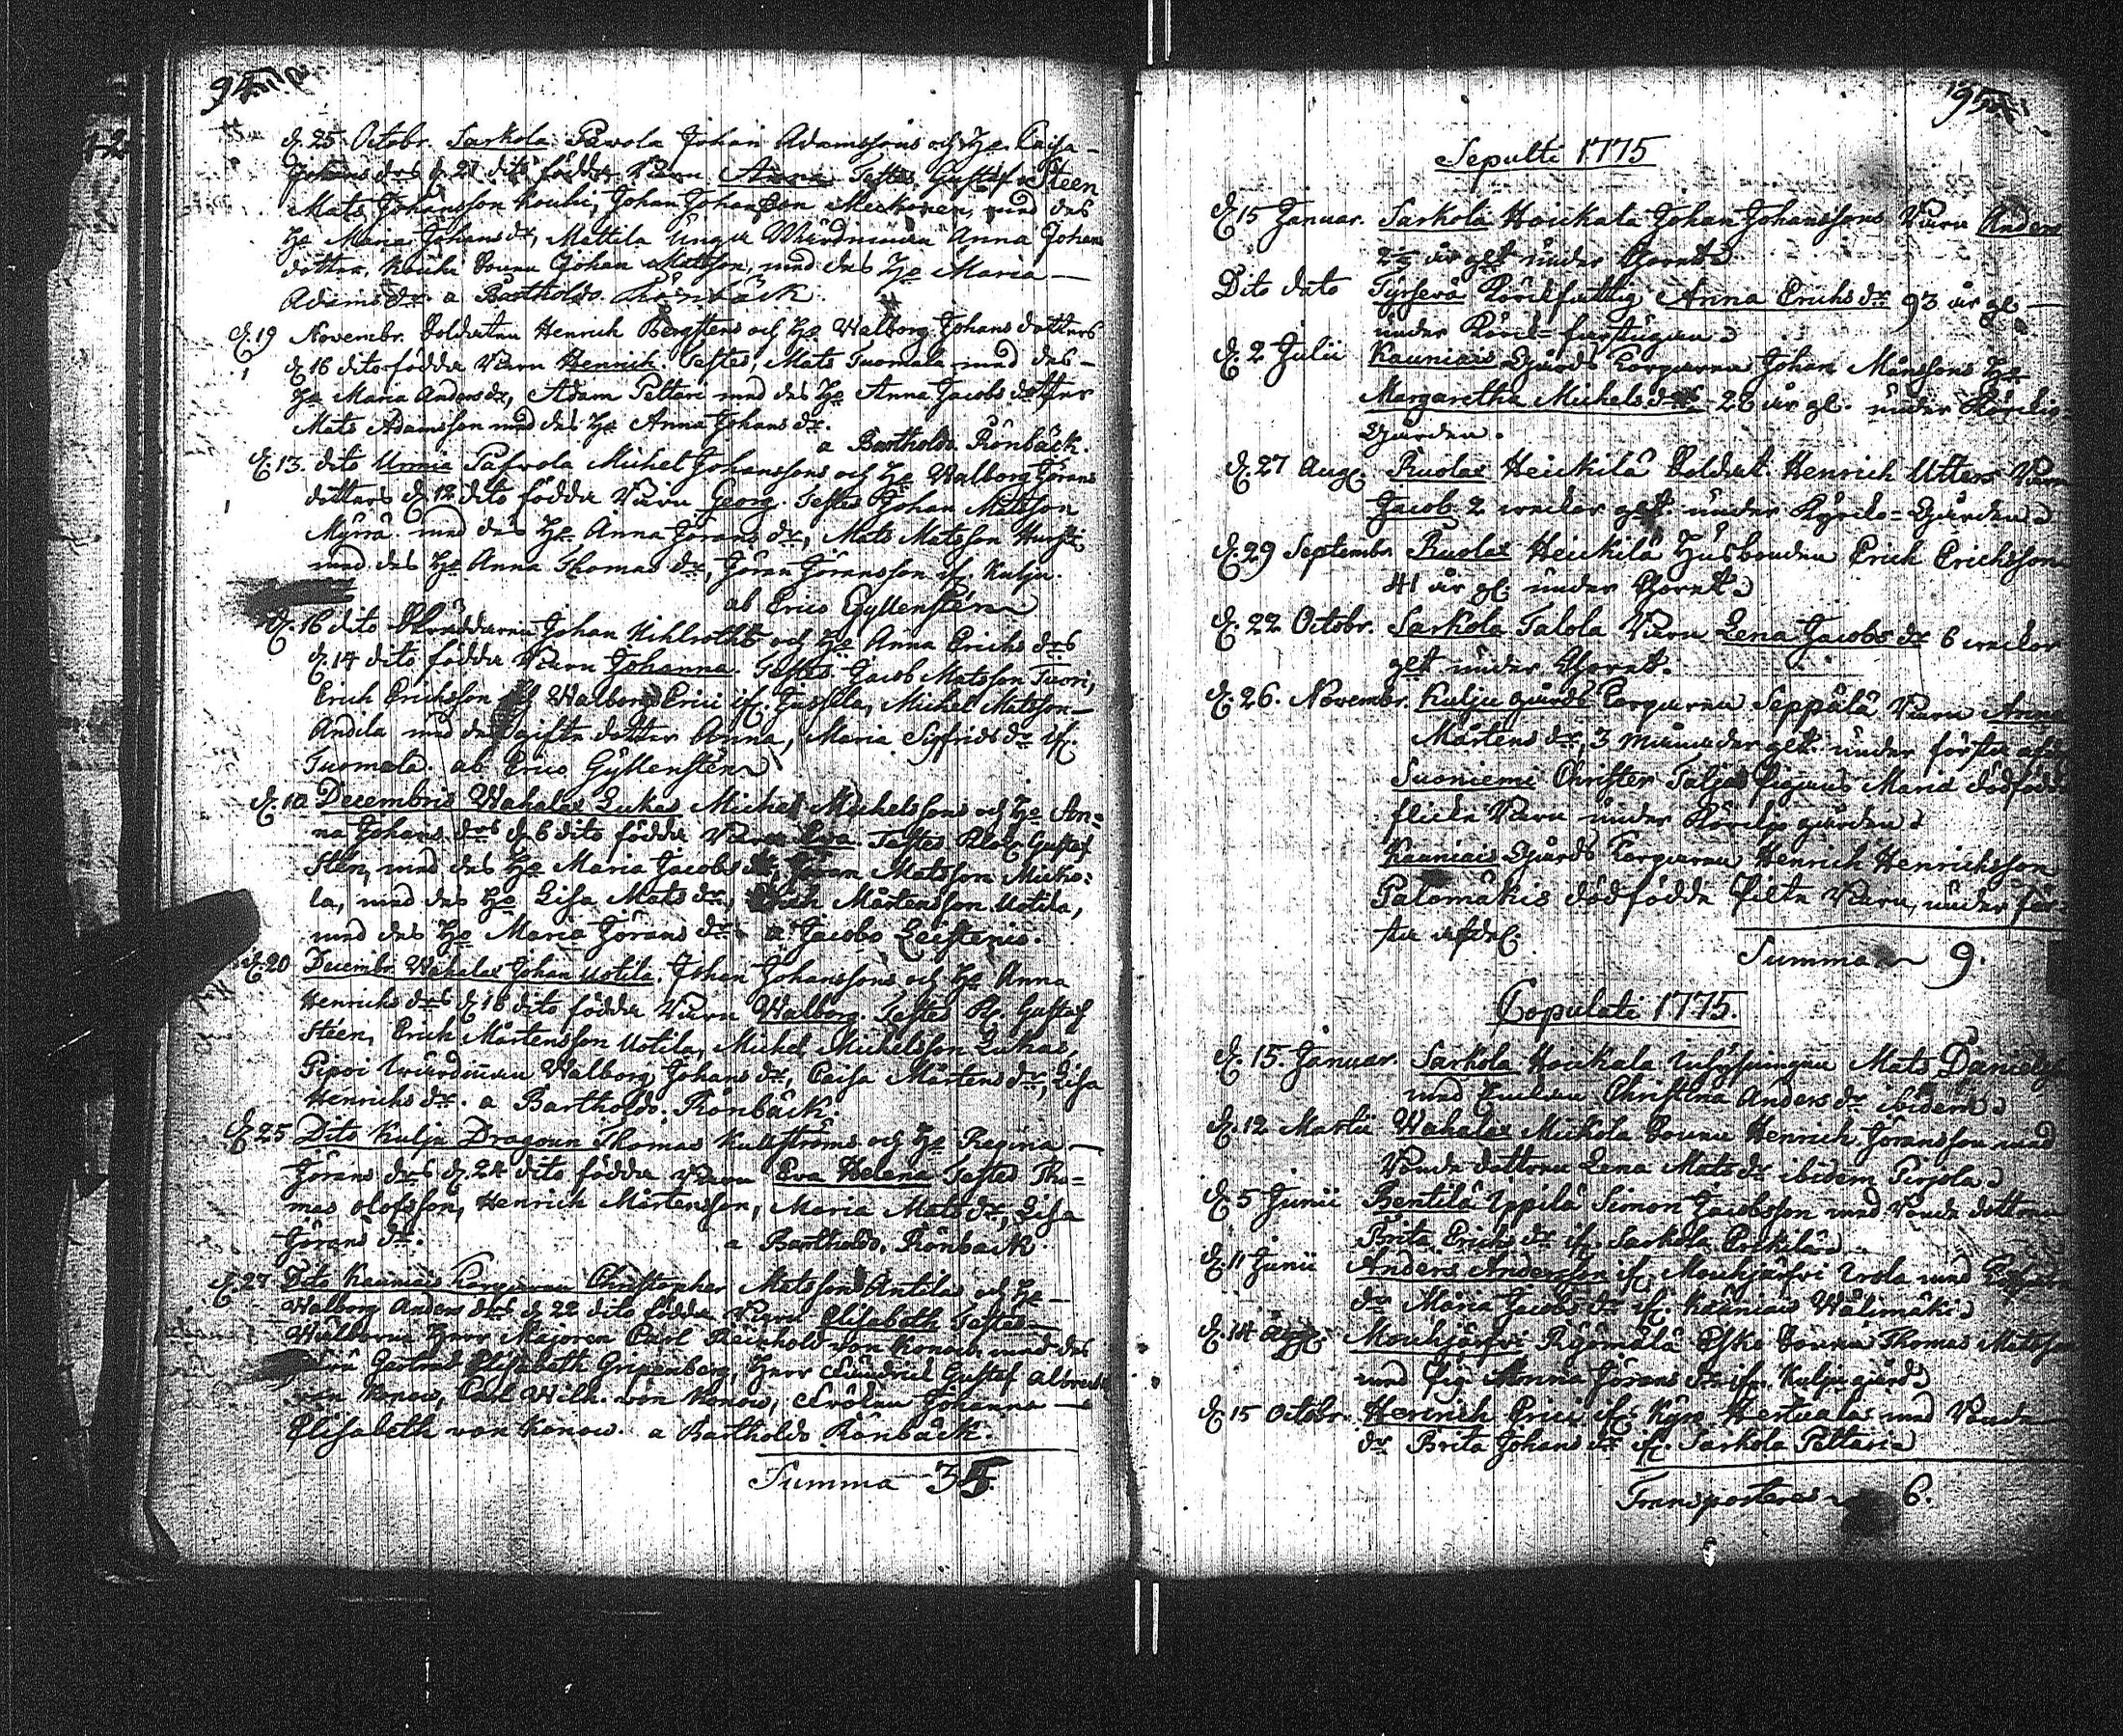 94
d. 25 Octobr. Sarkola Pavola Johan Adamssons och H:s Caisa
Johans drs d. 21 dito födde Barn Anna Testes Gustaf Steen
Mats Johansson Kouhi, Johan Johansson Meskonen, med des
H:o Maria Johans dr, Mattila Unga Wärdinnan Anna Johans
dotter, Kouhi Sonen Johan Mattson, med des H:o Maria
Adams dr. a Bartholdo Rönbäck.
d. 19 Novembr. Soldaten Henrich Bergstens och H:s Walborg Johans dotters
d. 16 dito födde Barn Henrich. Testes, Mats Tuomala med des
H:o Maria Anders dr, Adam Peltari med des H:o Anna Jacobs dotter
Mats Adamsson med des H:o Anna Johans dr.
a Bartholdo Rönbäck.
d. 13. dito Urmia Pafvola Michel Johanssons och H:s Walborg Görans
dotters d. 12 dito födde Barn Georg. Testes Johan Mattson
Myrrä med des H:o Anna Görans dr, Mats Matsson Hursti
med des H:o Anna Thomas dr, Göran Göransson if. Kulju.
ab Erico Gyllenstén
d. 16 dito Skräddaren Johan Kihlroths och H:s Anna Erichs drs
d. 14 dito födde Barn Johanna. Testes Jacob Matsson Tuori,
Erich Erichsson Walborg Erici if. Jussila, Michel Matsson
Andila med des gifte dotter Anna, Maria Sigfrids dr if.
Tuomola. ab Erico Gyllenstén
d. 10 Decembris Wahalax Lukas Michel Michelssons och H:s An=
na Johans drs d. 6 dito födde Barn Eva. Testes Klock. Gustaf
Stén, med des H:o Maria Jacobs dr, Göran Matsson Micko=
la, med des H:o Lisa Mats dr, Erich Mårtensson Uotila,
med des H:o Maria Görans dr. a Jacobo Leistenio.
d. 20 Decembr. Wahalax Johan Uotila. Johan Johanssons och H:s Anna
Henrichs drs d. 16 dito födde Barn Walborg. Testes Kl. Gustaf
Stéen, Erich Mårtensson Uotila, Michel Michelsson Lukas,
Pipoi Wärdinnan Walborg Johans dr, Caisa Mårtens dr, Lisa
Henrichs dr. a Bartholdo Rönbäck.
d. 25 Dito Kulju Dragoun Thomas Kullströms och H:s Regina
Görans drs d. 24 dito födde Barn Eva Helena Testes Tho=
mas Olofsson, Henrich Mårtensson, Maria Mats dr, Lisa
Görans dr. a Bartholdo Rönbäck.
d. 27 Dito Kauniais Torparen Christopher Matsson Antilas och H:s
Walborg Anders drs d. 22 dito födde Barn Elisabeth Testes
Wälborne Herr Majoren Carl Reinhold von Konow med des
Fru Gertrud Elisabeth Gripenberg, Herr Fändrich Gustaf Albrecht
von Konow, Carl Wilh. von Konow, Fröken Johanna
Elisabeth von Konow. a Bartholdo Rönbäck.
Summa 35.
95
Sepulti 1775
d. 15 Januar. Sarkola Houkala Johan Johanssons Barn Anders
2 ½ år glt under Choret
Dito dato Tyrfevä Körckfattig Anna Erichs dr 93 år gl
under Körck=farstugan
d. 2 Julii Kauniais Gjårds Torparen Johan Månssons H:o
Margaretha Michels dr 28 år gl. under Körckio
Gjården.
d. 27 Aug. Ruolax Heickilä Soldat. Henrich Utters Barn
Jacob 2 weckor glt. under Kyrcko=Gjården
d. 29 Septembr. Ruolax Heickilä Husbonden Erich Erichsson
41 år gl under Choret
d. 22 Octobr. Sarkola Talola Barn Lena Jacobs dr 6 weckor
glt under Choret.
d. 26. Novembr. Kulju gjårds Torparen Seppälä Barn Anna
Mårtens dr, 3 månader glt. under första afd
Suoniemi Christer Taljas Pigans Maria dödfödde
flicke Barn under Körckjo gjården
Kauniais Gjårds Torparen Henrich Henrichsson
Palomäkis dödfödde Pilte Barn, under för=
sta afdel.
Summa 9.
Copulati 1775.
d. 15. Januar. Sarkola Houkala Inhysingen Mats Daniels
med Enckan Christina Anders dr ibidem
d. 12 Martii Wahalax Mickola Sonen Henrich Göransson med
Bonde dottren Lena Mats dr ibidem Pirjola
d. 5 Junii Bentilä Uppilä Simon Jacobsson med Bonde dottren
Brita Erichs dr if. Sarkola Erckilä
d. 11 Junii Anders Andersson if. Mouhijärfvi Urola med
dr Maria Jacobs dr if. Kauniais Wälimäki
d. 14 Aug. Mouhijärfvi Ryömälä Esko Sonen Thomas Matsson
med Pig. Anna Görans dr if. Kulju gjård
d. 15 Octobr. Henrich Erici if. Kyrö Hertuala med Bonde
dr Brita Johans dr if. Sarkola Peltari
Transporteres 6.